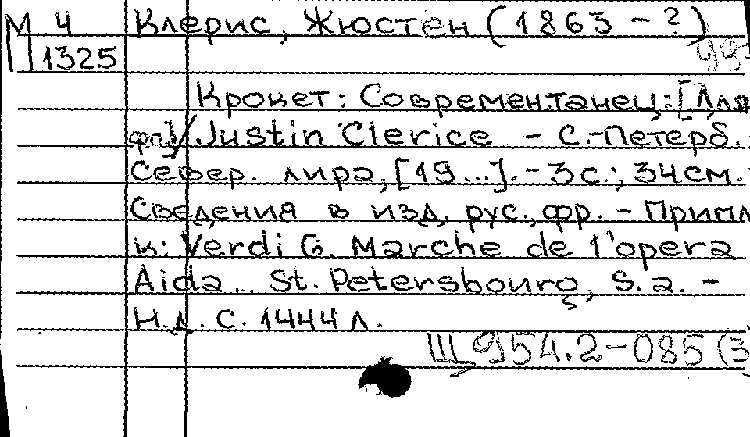 М 4 Клерис, Жюстен (1863 - ?)
П 1325
Крокет: Современ.танец: [Для
фп]/Justin Clerice - С.-Петерб.:
Север. лира, [19...]. - 3с.; 34см. -
Сведения в изд. рус., фр. - Припл.
к: Verdi G. Marche de l'opera
Aida. St. Petersbourg, S. a. -
Н.д. С. 1444 л.
Щ 954.2-085 (3